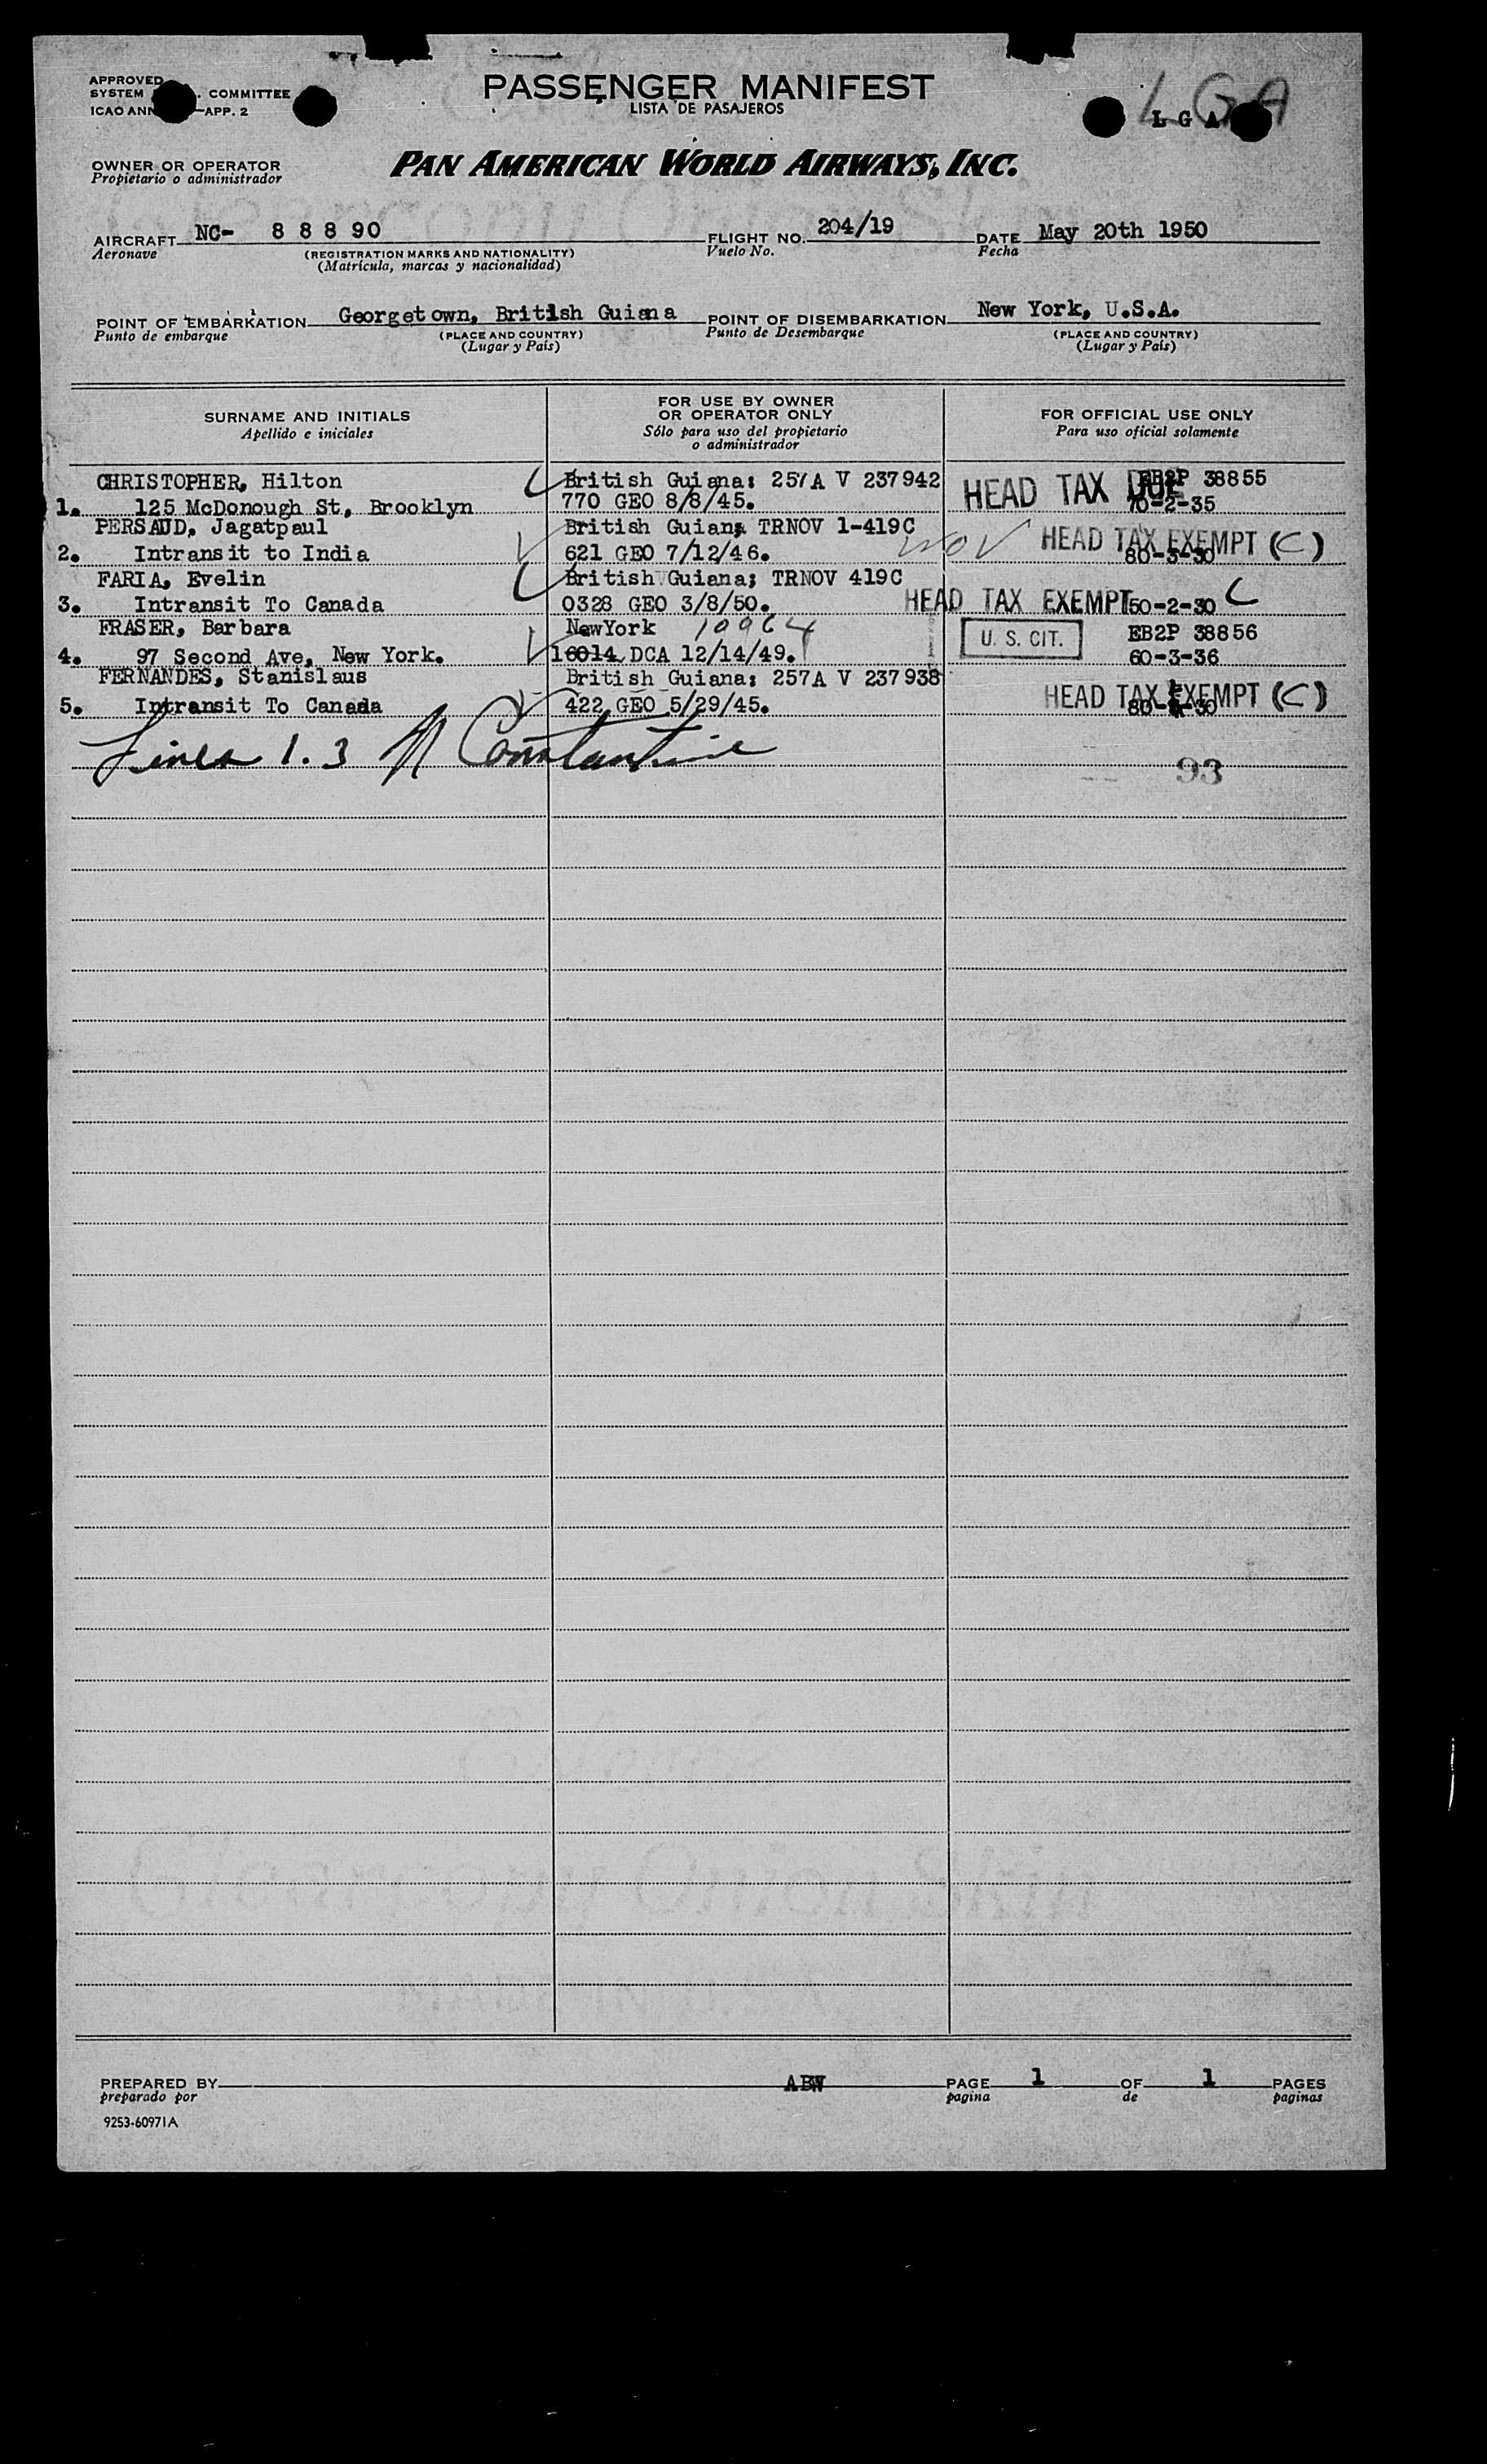 APPROVED
SYSTEM . COMMITTEE
ICAO ANN —APP. 2
PASSENGER MANIFEST
LISTA DE PASAJEROS
LGA
L G A
OWNER OR OPERATOR
Propietario o administrador
PAN AMERICAN WORLD AIRWAYS, INC.
AIRCRAFT NC- 8 8 8 90 FLIGHT NO. 204/19 DATE May 20th 1950
Aeronave (REGISTRATION MARKS AND NATIONALITY) Vuelo No. Fecha
(Matrícula, marcas y nacionalidad)
POINT OF EMBARKATION Georgetown, British Guiana POINT OF DISEMBARKATION New York, U.S.A.
Punto de embarque (PLACE AND COUNTRY) Punto de Desembarque (PLACE AND COUNTRY)
(Lugar y País) (Lugar y País)
SURNAME AND INITIALS
Apellido e iniciales
FOR USE BY OWNER
OR OPERATOR ONLY
Sólo para uso del propietario
o administrador
FOR OFFICIAL USE ONLY
Para uso oficial solamente
CHRISTOPHER, Hilton British Guiana: 257A V 237942 HEAD TAX DUE EB2P 38855
1. 125 McDonough St, Brooklyn 770 GEO 8/8/45. 70-2-35
PERSAUD, Jagatpaul British Guiana TRNOV 1-419C NOV HEAD TAX EXEMPT (C)
2. Intransit to India 621 GEO 7/12/46. 80-3-30
FARIA, Evelin British Guiana; TRNOV 419C
3. Intransit To Canada 0328 GEO 3/8/50. HEAD TAX EXEMPT 50-2-30 C
FRASER, Barbara NewYork 10964 U. S. CIT. EB2P 38856
4. 97 Second Ave, New York. 16014 DCA 12/14/49. 60-3-36
FERNANDES, Stanislaus British Guiana: 257A V 237938 HEAD TAX EXEMPT (C)
5. Intransit To Canada 422 GEO 5/29/45.
Lines 1. 3 N Constantine
93
PREPARED BY ABW PAGE 1 OF 1 PAGES
preparado por pagina de paginas
9253-60971A